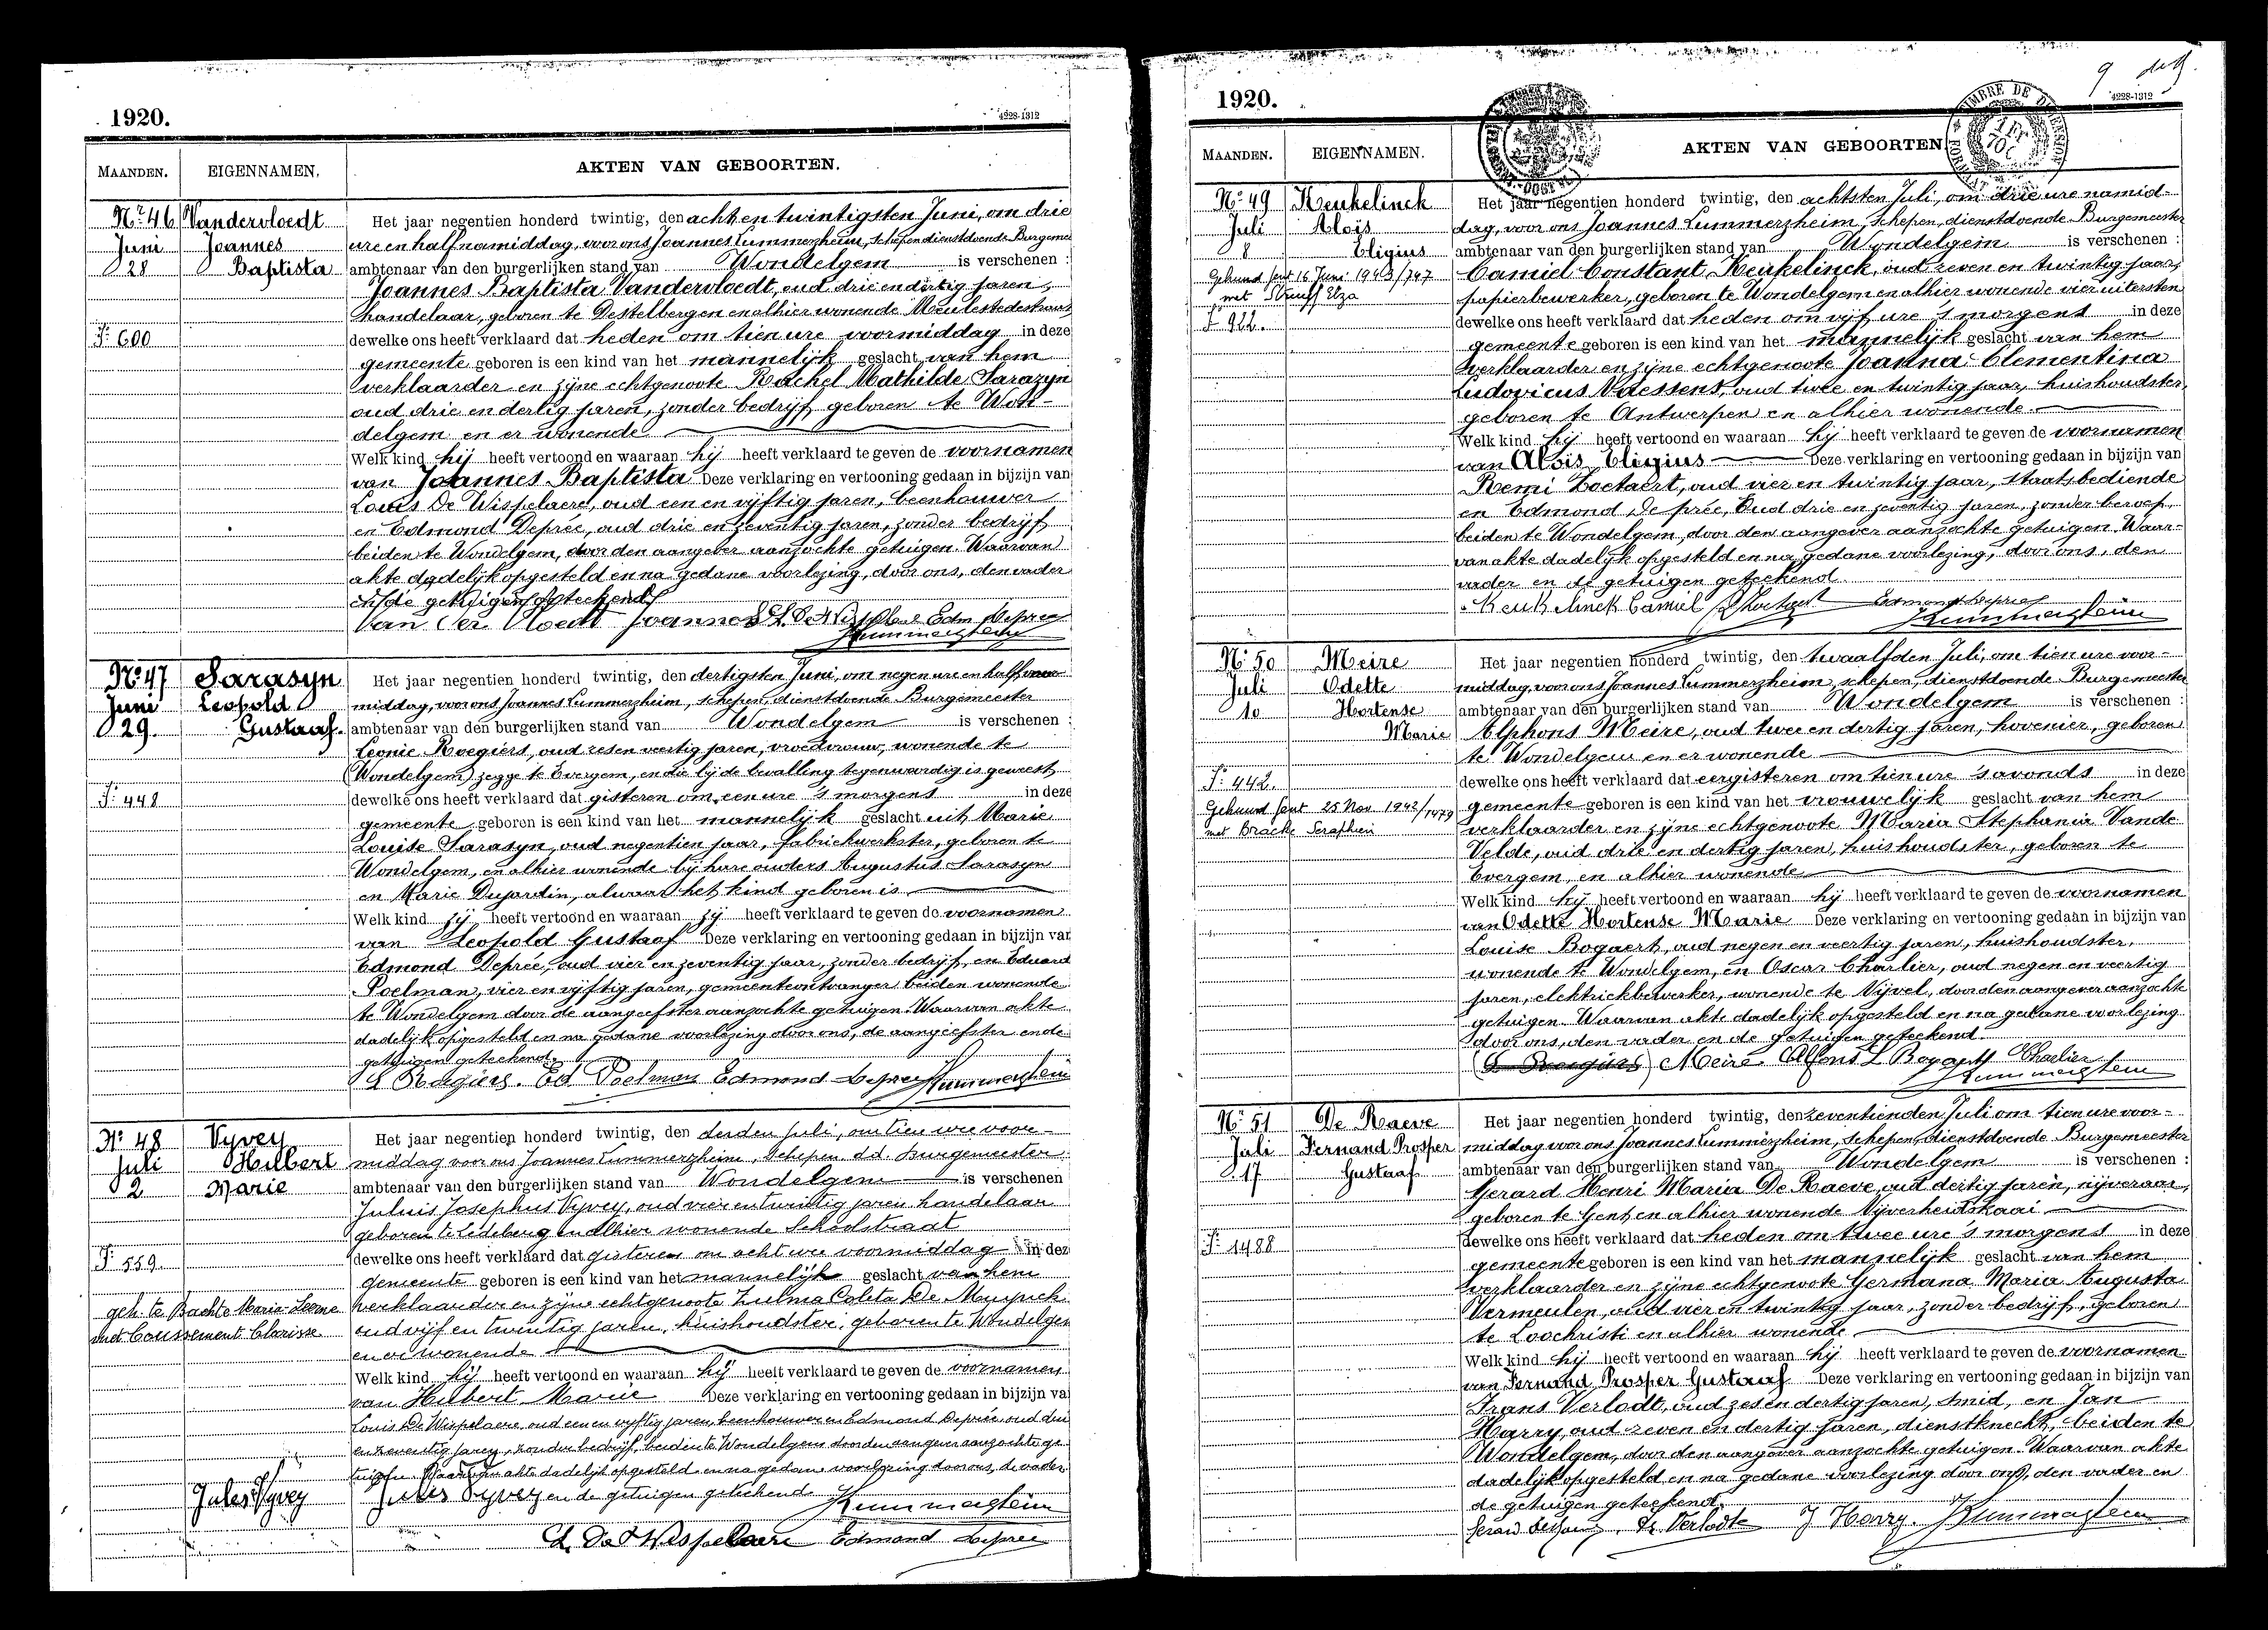 1920.
4228-1312
MAANDEN.
EIGENNAMEN.
AKTEN VAN GEBOORTEN.
Nr 46 Vandervloedt
Juni Joannes
28 Baptista
F: 600
Het jaar negentien honderd twintig, den acht en twintigsten Juni, om drie
ure en half namiddag, voor ons Joannes Lummerzheim, schepen dienstdoende Burgemee
ambtenaar van den burgerlijken stand van Wondelgem is verschenen :
Joannes Baptista Vandervloedt, oud drie en dertig jaren,
handelaar, geboren te Destelbergen en alhier wonende Meulestedestraat
dewelke ons heeft verklaard dat heden om tien ure voormiddag in deze
gemeente geboren is een kind van het mannelijk geslacht van hem
verklaarder en zijne echtgenoote Rachel Mathilde Sarazyn
oud drie en dertig jaren, zonder bedrijf geboren te Won-
delgem en er wonende
Welk kind hij heeft vertoond en waaraan hij heeft verklaard te geven de voornamen
van Joannes Baptista Deze verklaring en vertooning gedaan in bijzijn van
Louis De Wispelaere, oud een en vijftig jaren, beenhouwer
en Edmond Deprée, oud drie en zeventig jaren, zonder bedrijf
beiden te Wondelgem, door den aangever aanzochte getuigen. Waarvan
akte dadelijk opgesteld en na gedane voorlezing, door ons, den vader
en de getuigen geteekend
Van der Vloedt Joannes L. De Wispelaere Edm Depree
Lummerzheim
No 47 Sarasyn
Juni Leopold
29. Gustaaf.
F: 448
Het jaar negentien honderd twintig, den dertigsten Juni, om negen ure en half voor
middag, voor ons Joannes Lummerzheim, schepen, dienstdoende Burgemeester
ambtenaar van den burgerlijken stand van Wondelgem is verschenen :
Leonie Roegiers, oud zes en veertig jaren, vroedvrouw, wonende te
(Wondelgem) zegge te Evergem, en die bij de bevalling tegenwoordig is geweest
dewelke ons heeft verklaard dat gisteren om een ure 's morgens in deze
gemeente geboren is een kind van het mannelijk geslacht uit Marie
Louise Sarasyn, oud negentien jaar, fabriekwerkster, geboren te
Wondelgem, en alhier wonende bij hare ouders Augustus Sarasyn
en Marie Dujardin, alwaar het kind geboren is
Welk kind zij heeft vertoond en waaraan zij heeft verklaard te geven de voornamen
van Leopold Gustaaf Deze verklaring en vertooning gedaan in bijzijn van
Edmond Deprée, oud vier en zeventig jaar, zonder bedrijf, en Eduard
Poelman, vier en vijftig jaren, gemeenteontvanger beiden wonende
te Wondelgem door de aangeefster aanzochte getuigen. Waarvan akte
dadelijk opgesteld en na gedane voorlezing door ons, de aangeefster en de
getuigen geteekend.
L Roegiers. Ed. Poelman Edmond Depree Lummerzheim
No 48 Vyvey
Juli Hilbert
2 Marie
F: 559.
geh. te Bachte Maria Leerne
met Coussement Clarisse
Jules Vyvey
Het jaar negentien honderd twintig, den derden Juli, om tien ure voor-
middag voor ons Joannes Lummerzheim, Schepen d.d. Burgemeester
ambtenaar van den burgerlijken stand van Wondelgem is verschenen
Juluis Josephus Vyvey, oud vier en twintig jaren handelaar
geboren te Ledeberg en alhier wonende Schoolstraat
dewelke ons heeft verklaard dat gisteren om acht ure voormiddag in dez
gemeente geboren is een kind van het mannelijk geslacht van hem
verklaarder en zijne echtgenoote Zulma Coleta De Muynck
oud vijf en twintig jaren, huishoudster, geboren te Wondelgem
en er wonende
Welk kind hij heeft vertoond en waaraan hij heeft verklaard te geven de voornamen
van Hilbert Marie Deze verklaring en vertooning gedaan in bijzijn va
Louis De Wispelaere, oud een en vijftig jaren, beenhouwer en Edmond Deprée oud drie
en zeventig jaren, zonder bedrijf, beiden te Wondelgem door den aangever aanzochte ge-
tuigen. Waarvan akte dadelijk opgesteld en na gedane voorlezing door ons, de vader
Jules Vyvey en de getuigen geteekend Lummerzheim
L. De Wispelaere Edmond Depree
9
1920.
4228-1312
MAANDEN.
EIGENNAMEN.
AKTEN VAN GEBOORTEN
No 49 Keukelinck
Juli Aloïs
8 Eligius
Gehuwd Gent 16 Juni 1943/747
met Struyf Elza
F 922.
Het jaar negentien honderd twintig, den achtsten Juli, om drie ure namid-
dag, voor ons Joannes Lummerzheim, schepen, dienstdoende Burgemeester
ambtenaar van den burgerlijken stand van Wondelgem is verschenen :
Camiel Constant Keukelinck, oud zeven en twintig jaar,
papierbewerker, geboren te Wondelgem en alhier wonende vier uitersten
dewelke ons heeft verklaard dat heden om vijf ure 's morgens in deze
gemeente geboren is een kind van het mannelijk geslacht van hem
verklaarder en zijne echtgenoote Joanna Clementina
Ludovicus Vaessens, oud twee en twintig jaar, huishoudster,
geboren te Antwerpen en alhier wonende
Welk kind hij heeft vertoond en waaraan hij heeft verklaard te geven de voornamen
van Aloïs Eligius Deze verklaring en vertooning gedaan in bijzijn van
Remi Loctaert, oud vier en twintig jaar, staatsbediende
en Edmond De prée, Oud drie en zeventig jaren, zonder beroep,
beiden te Wondelgem, door den aangever aanzochte getuigen. Waar-
van akte dadelijk opgesteld en na gedane voorlezing, door ons, den
vader en de getuigen geteekend
Keukelinck Camiel Edmond Depree
Lummerzheim
No 50 Meire
Juli Odette
10 Hortense
Marie
F: 442.
Gehuwd Gent 25 Nov. 1942/1479
met Bracke Serafhin
Het jaar negentien honderd twintig, den twaalfden Juli, om tien ure voor-
middag, voor ons Joannes Lummerzheim, schepen, dienstdoende Burgemeester
ambtenaar van den burgerlijken stand van Wondelgem is verschenen :
Alphons Meire, oud twee en dertig jaren, hovenier, geboren
te Wondelgem en er wonende
dewelke ons heeft verklaard dat eergisteren om tien ure 's avonds in deze
gemeente geboren is een kind van het vrouwelijk geslacht van hem
verklaarder en zijne echtgenoote Maria Stephania Vande
Velde, oud drie en dertig jaren, huishoudster, geboren te
Evergem, en alhier wonende
Welk kind hij heeft vertoond en waaraan hij heeft verklaard te geven de voornamen
van Odette Hortense Marie Deze verklaring en vertooning gedaan in bijzijn van
Louise Bogaert, oud negen en veertig jaren, huishoudster,
wonende te Wondelgem, en Oscar Charlier, oud negen en veertig
jaren, elektriekbewerker, wonende te Nijvel, door den aangever aanzochte
getuigen. Waarvan akte dadelijk opgesteld en na gedane voorlezing
door ons, den vader en de getuigen geteekend.
(L Roegiers) Meire Alfons L Bogaert Charlier
Lummerzheim
No 51 De Raeve
Juli Fernand Prosper
17 Gustaaf
F: 1488
Het jaar negentien honderd twintig, den zeventienden Juli om tien ure voor-
middag voor ons Joannes Lummerzheim, schepen, dienstdoende Burgemeester
ambtenaar van den burgerlijken stand van Wondelgem is verschenen :
Gerard Henri Maria De Raeve, oud dertig jaren, nijveraar,
geboren te Gent, en alhier wonende Nijverheidskaai
dewelke ons heeft verklaard dat heden om twee ure 's morgens in deze
gemeente geboren is een kind van het mannelijk geslacht van hem
verklaarder en zijne echtgenoote Germana Maria Augusta
Vermeulen, oud vier en twintig jaar, zonder bedrijf, geboren
te Loochristi en alhier wonende
Welk kind hij heeft vertoond en waaraan hij heeft verklaard te geven de voornamen
van Fernand Prosper Gustaaf Deze verklaring en vertooning gedaan in bijzijn van
Frans Verlodt, oud zes en dertig jaren, smid, en Jan
Harry, oud zeven en dertig jaren, dienstknecht, beiden te
Wondelgem, door den aangever aanzochte getuigen. Waarvan akte
dadelijk opgesteld en na gedane voorlezing door ons, den vader en
de getuigen geteekend.
Fr. Verlodt J Harry. Lummerzheim